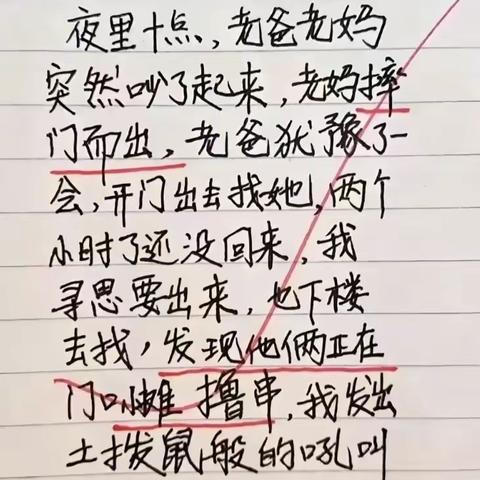 夜里十点，老爸老妈
突然吵了起来，老妈摔
门而出，老爸犹豫了一
会，开门出去找她，两个
小时了还没回来，我
寻思要出来，也下楼
去找，发现他俩正在
门口小摊撸串，我发出
土拨鼠般的吼叫